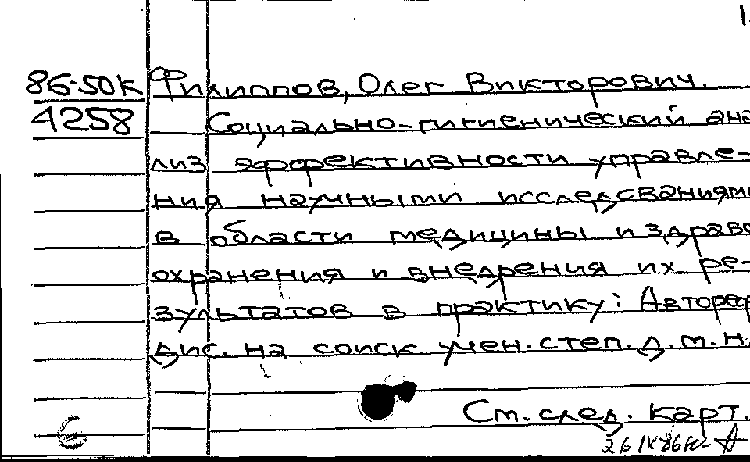 86-50К Филиппов, Олег Викторович.
4258 Социально-гигиенический ана
лиз эффективности управле-
ния научными исследованиями
в области медицины и здраво
охранения и внедрения их ре-
зультатов в практику: Автореф
дис. на соиск учен. степ. д. м. н
См. след. карт.